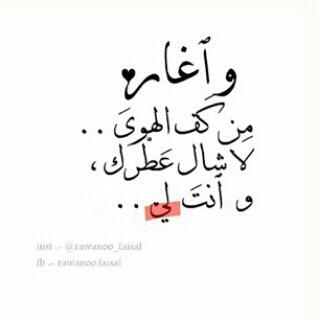 و أغار♥
مِن كَف الهوىَ . .
لا شال عَطْرك ،
و أنتَ لي . .
inst ~ @rawanoo_faisal
fb ~ rawanoo.faisal